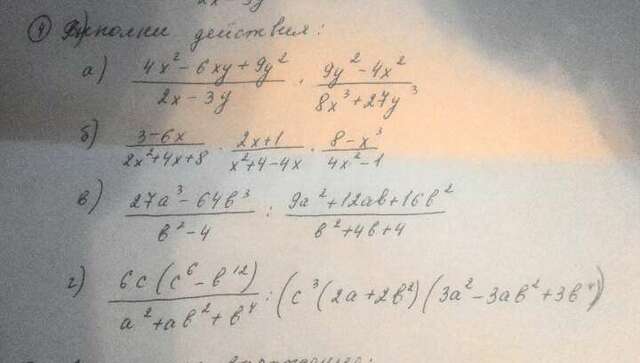 ④ Выполни действия:
а) \frac{4x^2 - 6xy + 9y^2}{2x - 3y} \cdot \frac{9y^2 - 4x^2}{8x^3 + 27y^3}
б) \frac{3 - 6x}{2x^2 + 4x + 8} \cdot \frac{2x + 1}{x^2 + 4 - 4x} \cdot \frac{8 - x^3}{4x^2 - 1}
в) \frac{27a^3 - 64b^3}{b^2 - 4} : \frac{9a^2 + 12ab + 16b^2}{b^2 + 4b + 4}
г) \frac{6c(c^6 - b^{12})}{a^2 + ab^2 + b^4} : (c^3(2a + 2b^2)(3a^2 - 3ab^2 + 3b^4))